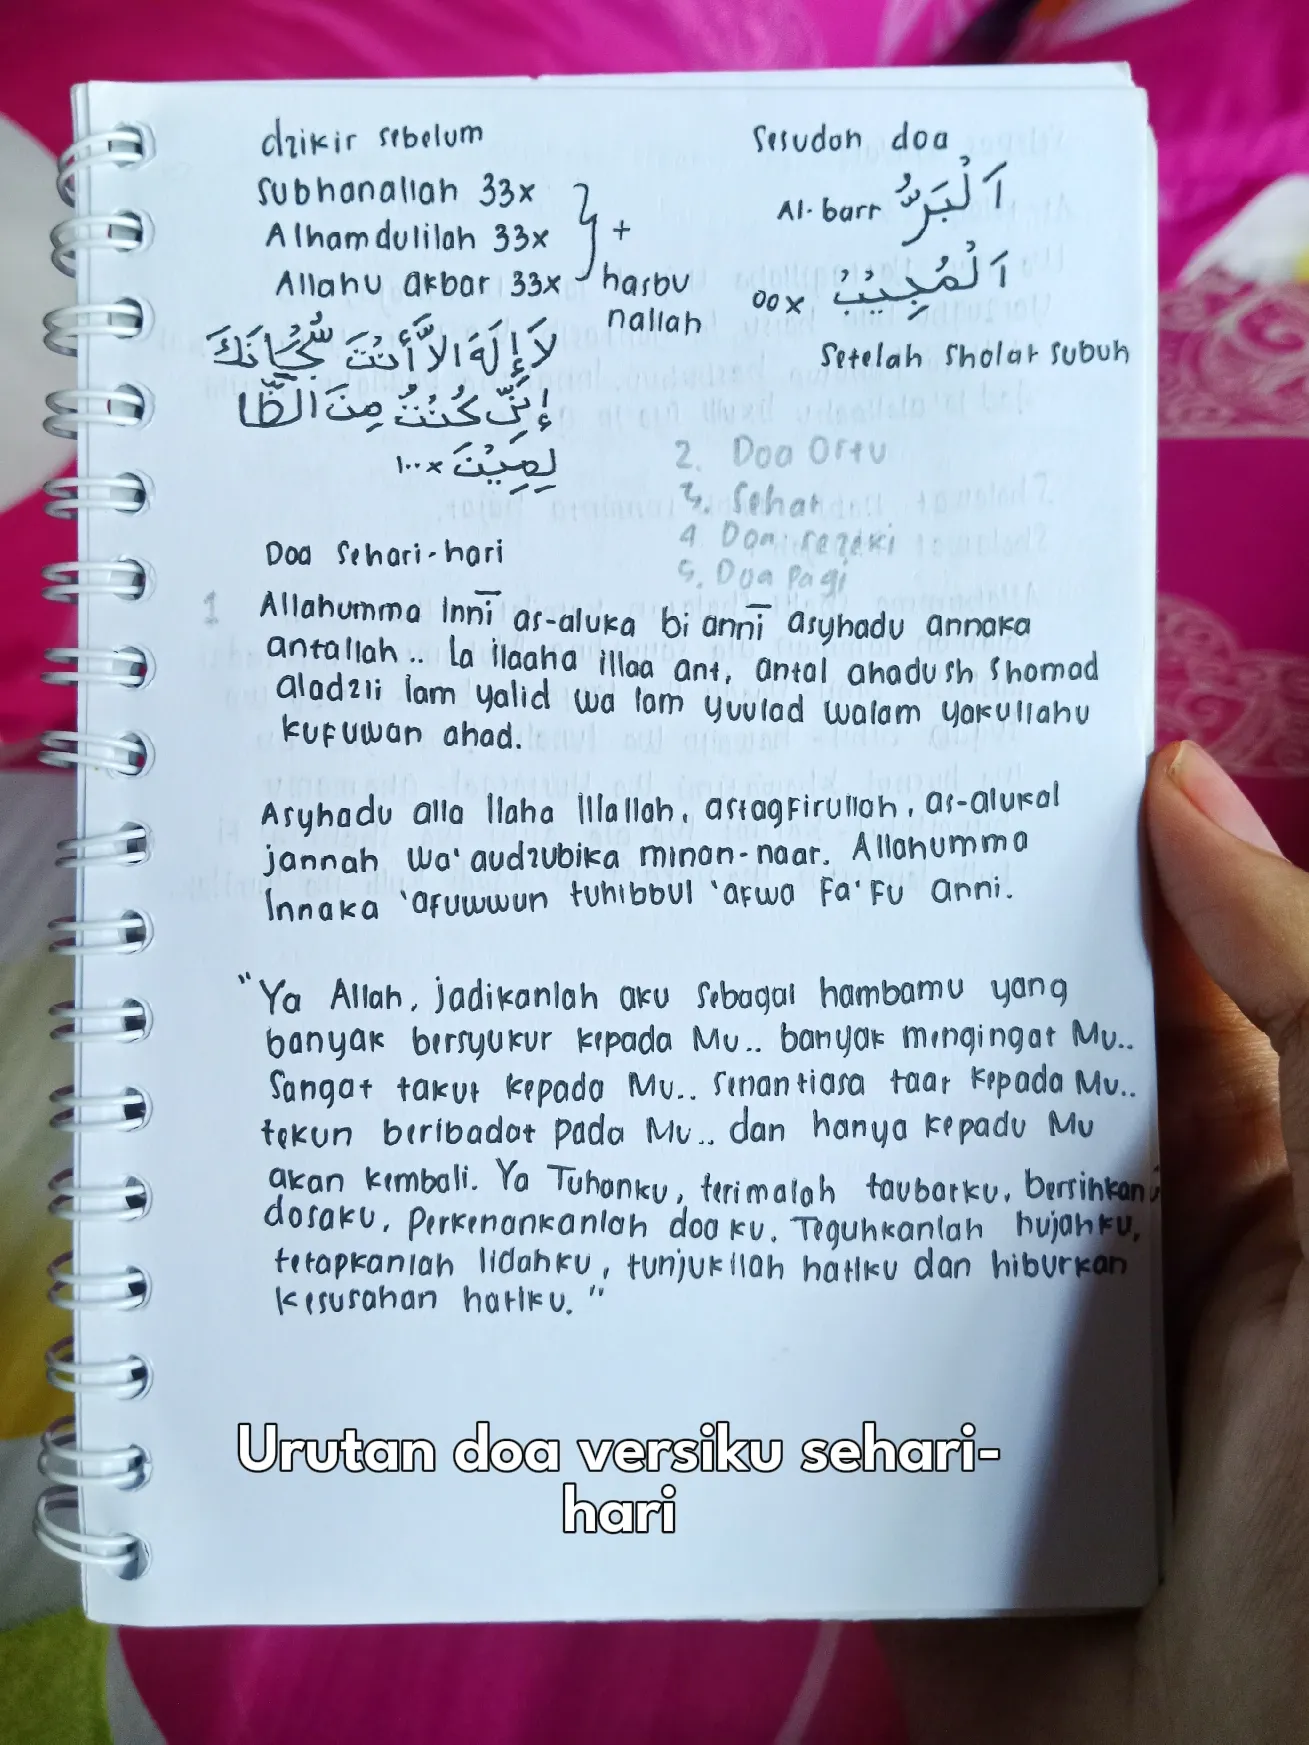 dzikir sebelum
subhanallah 33x
Alhamdulilah 33x
Allahu akbar 33x
+
hasbu
nallah
لَا إِلَهَ اِلاَّ أَنْتَ سُبْحَانَكَ
إِنِّي كُنْتُ مِنَ الظَّا
لِمِيْنَ ١٠٠x
Sesudah doa
Al-barr اَلْبَرُّ
00x اَلْمُجِيْبُ
Setelah Sholat Subuh
2. Doa Ortu
3. Sehat
4 Doa rezeki
5. Doa Pagi
Doa Sehari-hari
1 Allahumma Innī as-aluka bi annī asyhadu annaka
antallah.. La ilaaha illaa ant, antal ahadush Shomad
aladzli lam yalid wa lam yuulad walam yakullahu
kufuwan ahad.
Asyhadu alla Ilaha Illallah, astagfirullah, as-alukal
jannah wa'audzubika minan-naar. Allahumma
Innaka 'afuwwun tuhibbul 'afwa fa'fu anni.
"Ya Allah, jadikanlah aku sebagai hambamu yang
banyak bersyukur kepada Mu.. banyak mengingat Mu..
Sangat takut kepada Mu.. Senantiasa taat kepada Mu..
tekun beribadat pada Mu.. dan hanya kepadu Mu
akan kembali. Ya Tuhanku, terimalah taubatku, bersihkan
dosaku, Perkenankanlah doa ku. Teguhkanlah hujahku,
tetapkanlah lidahku, tunjukilah hatiku dan hiburkan
kesusahan hatiku."
Urutan doa versiku sehari-
hari